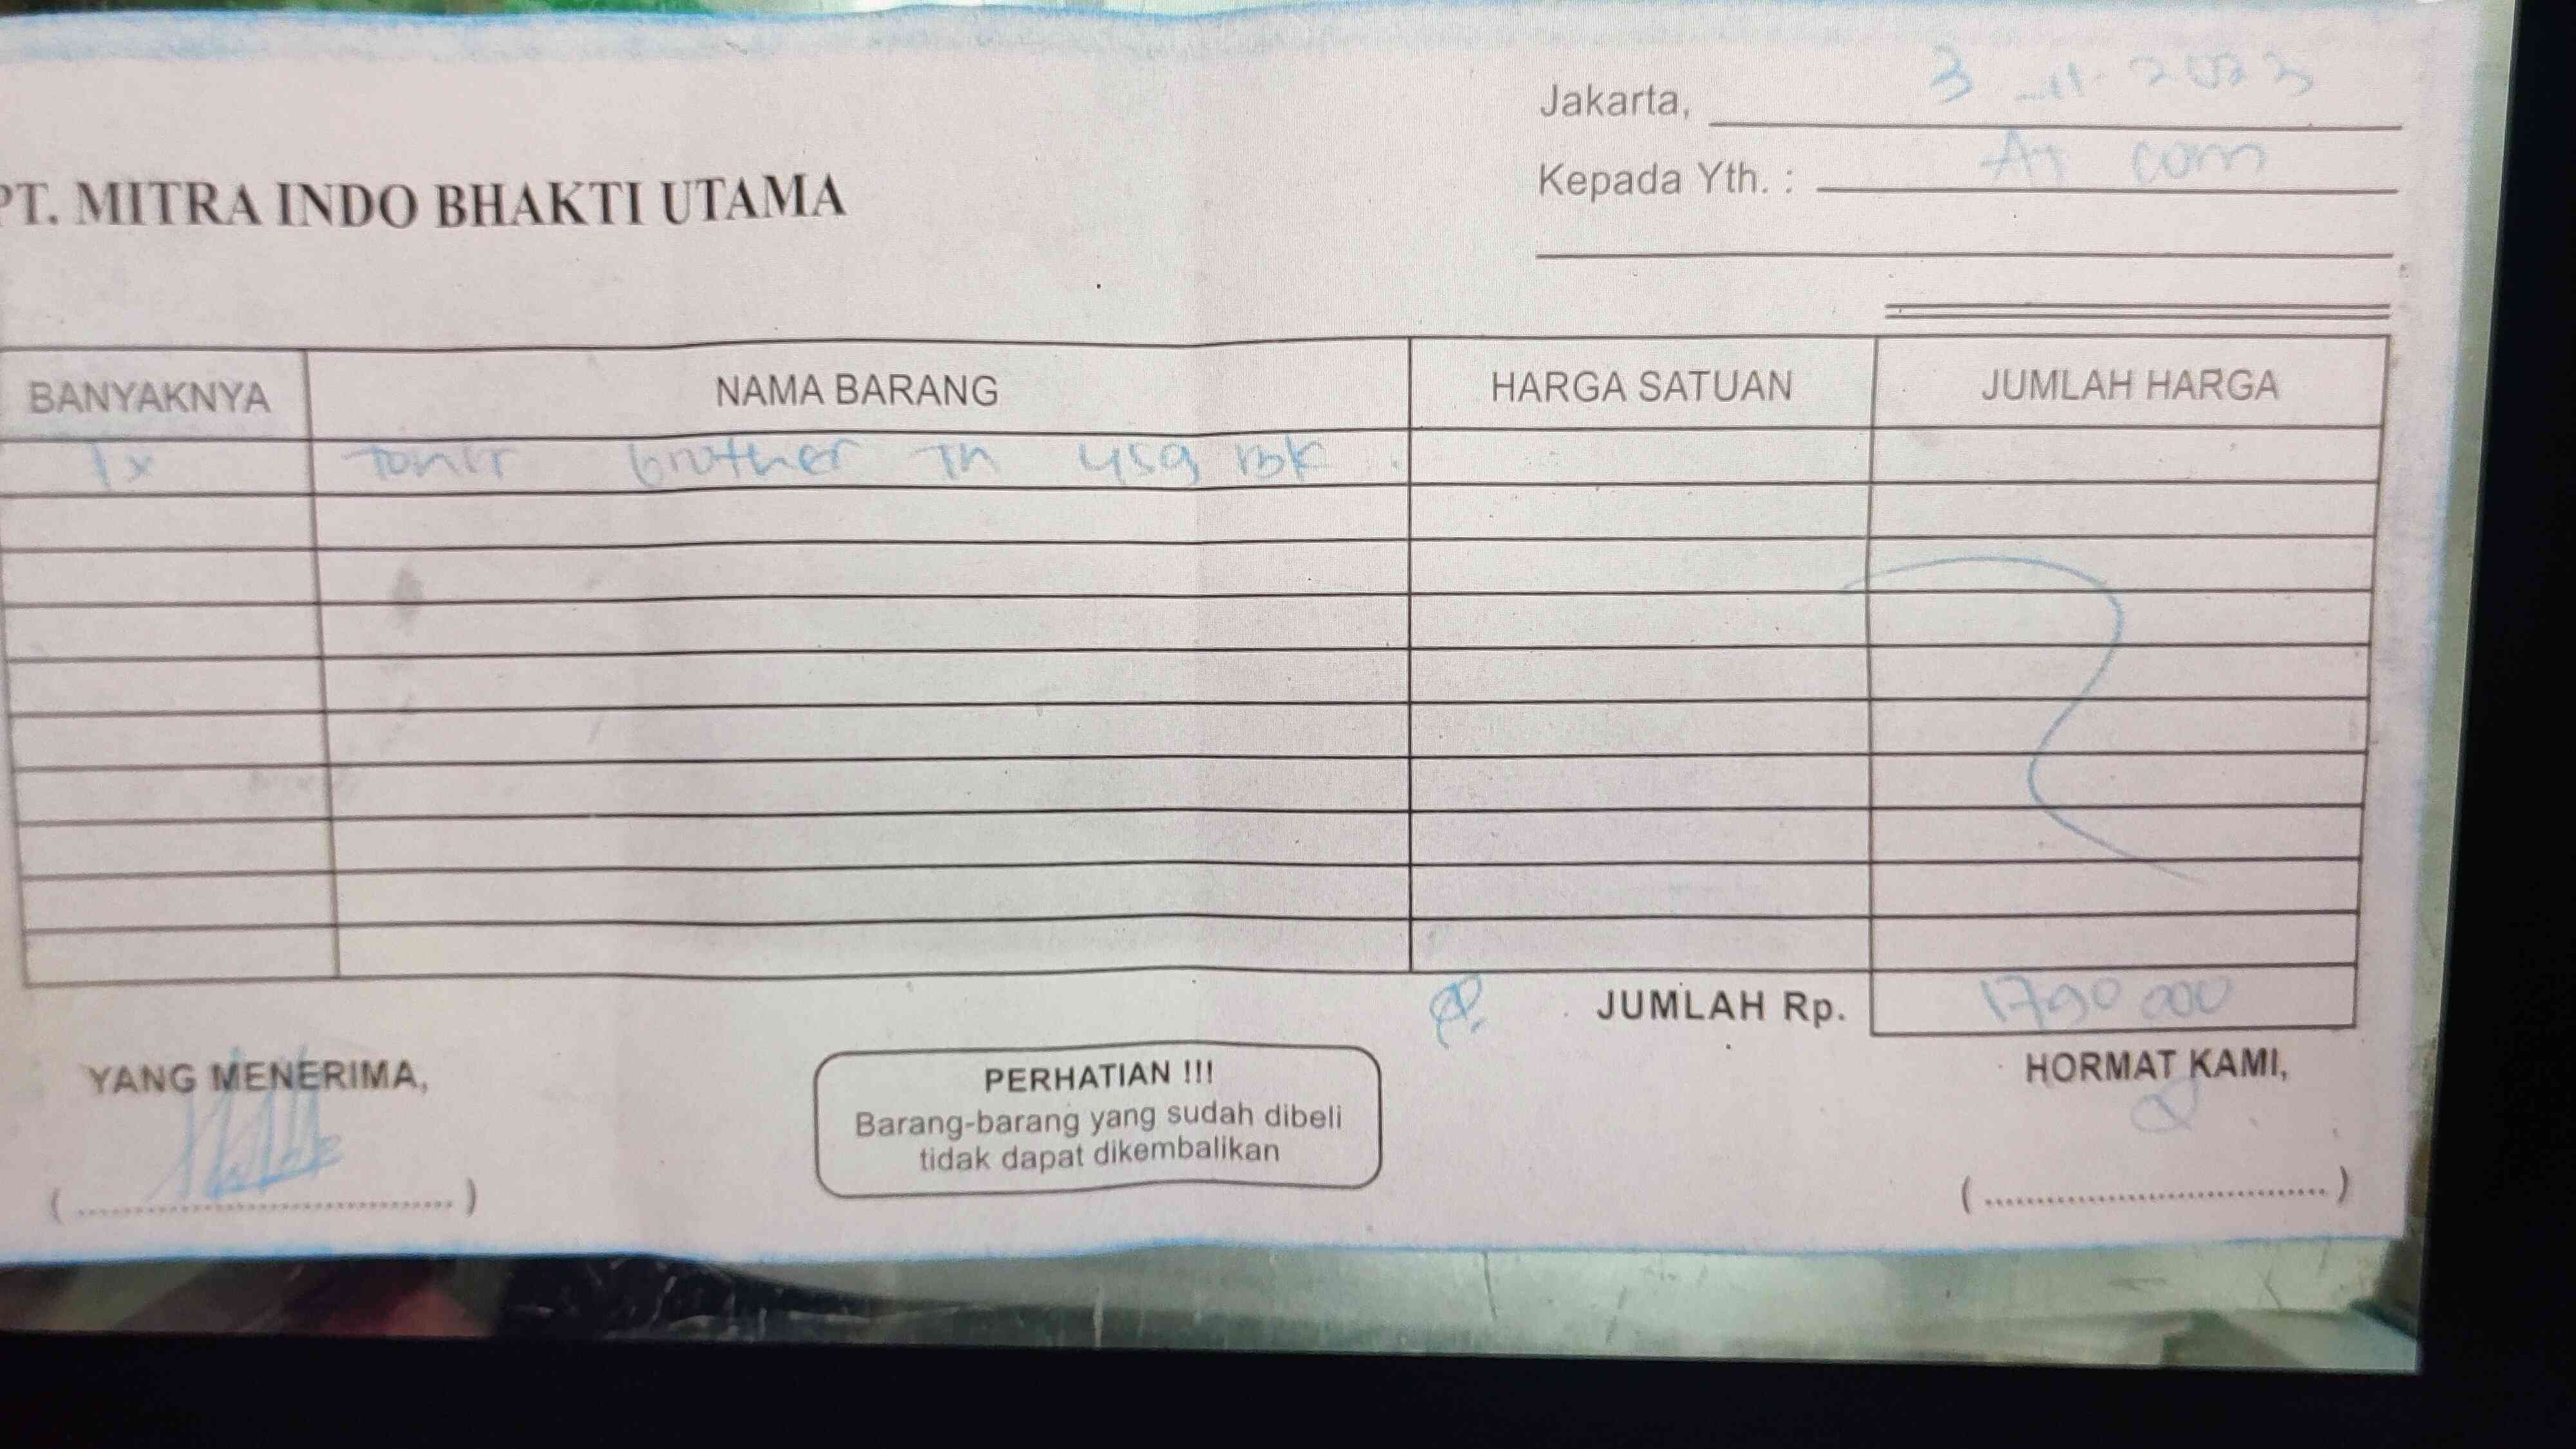 Jakarta, 3 - 11 - 2023
Kepada Yth. : AT com
PT. MITRA INDO BHAKTI UTAMA
BANYAKNYA NAMA BARANG HARGA SATUAN JUMLAH HARGA
1x toner brother Tn 459 BK
JUMLAH Rp. 1790 000
YANG MENERIMA,
PERHATIAN !!!
Barang-barang yang sudah dibeli
tidak dapat dikembalikan
HORMAT KAMI,
(....................................)
(....................................)